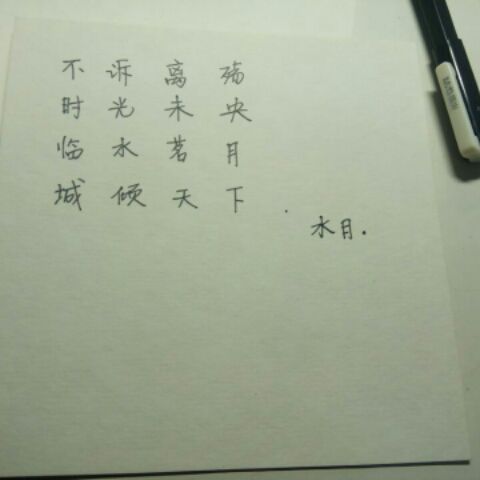 不诉离殇
时光未央
临水茗月
城倾天下
水月.